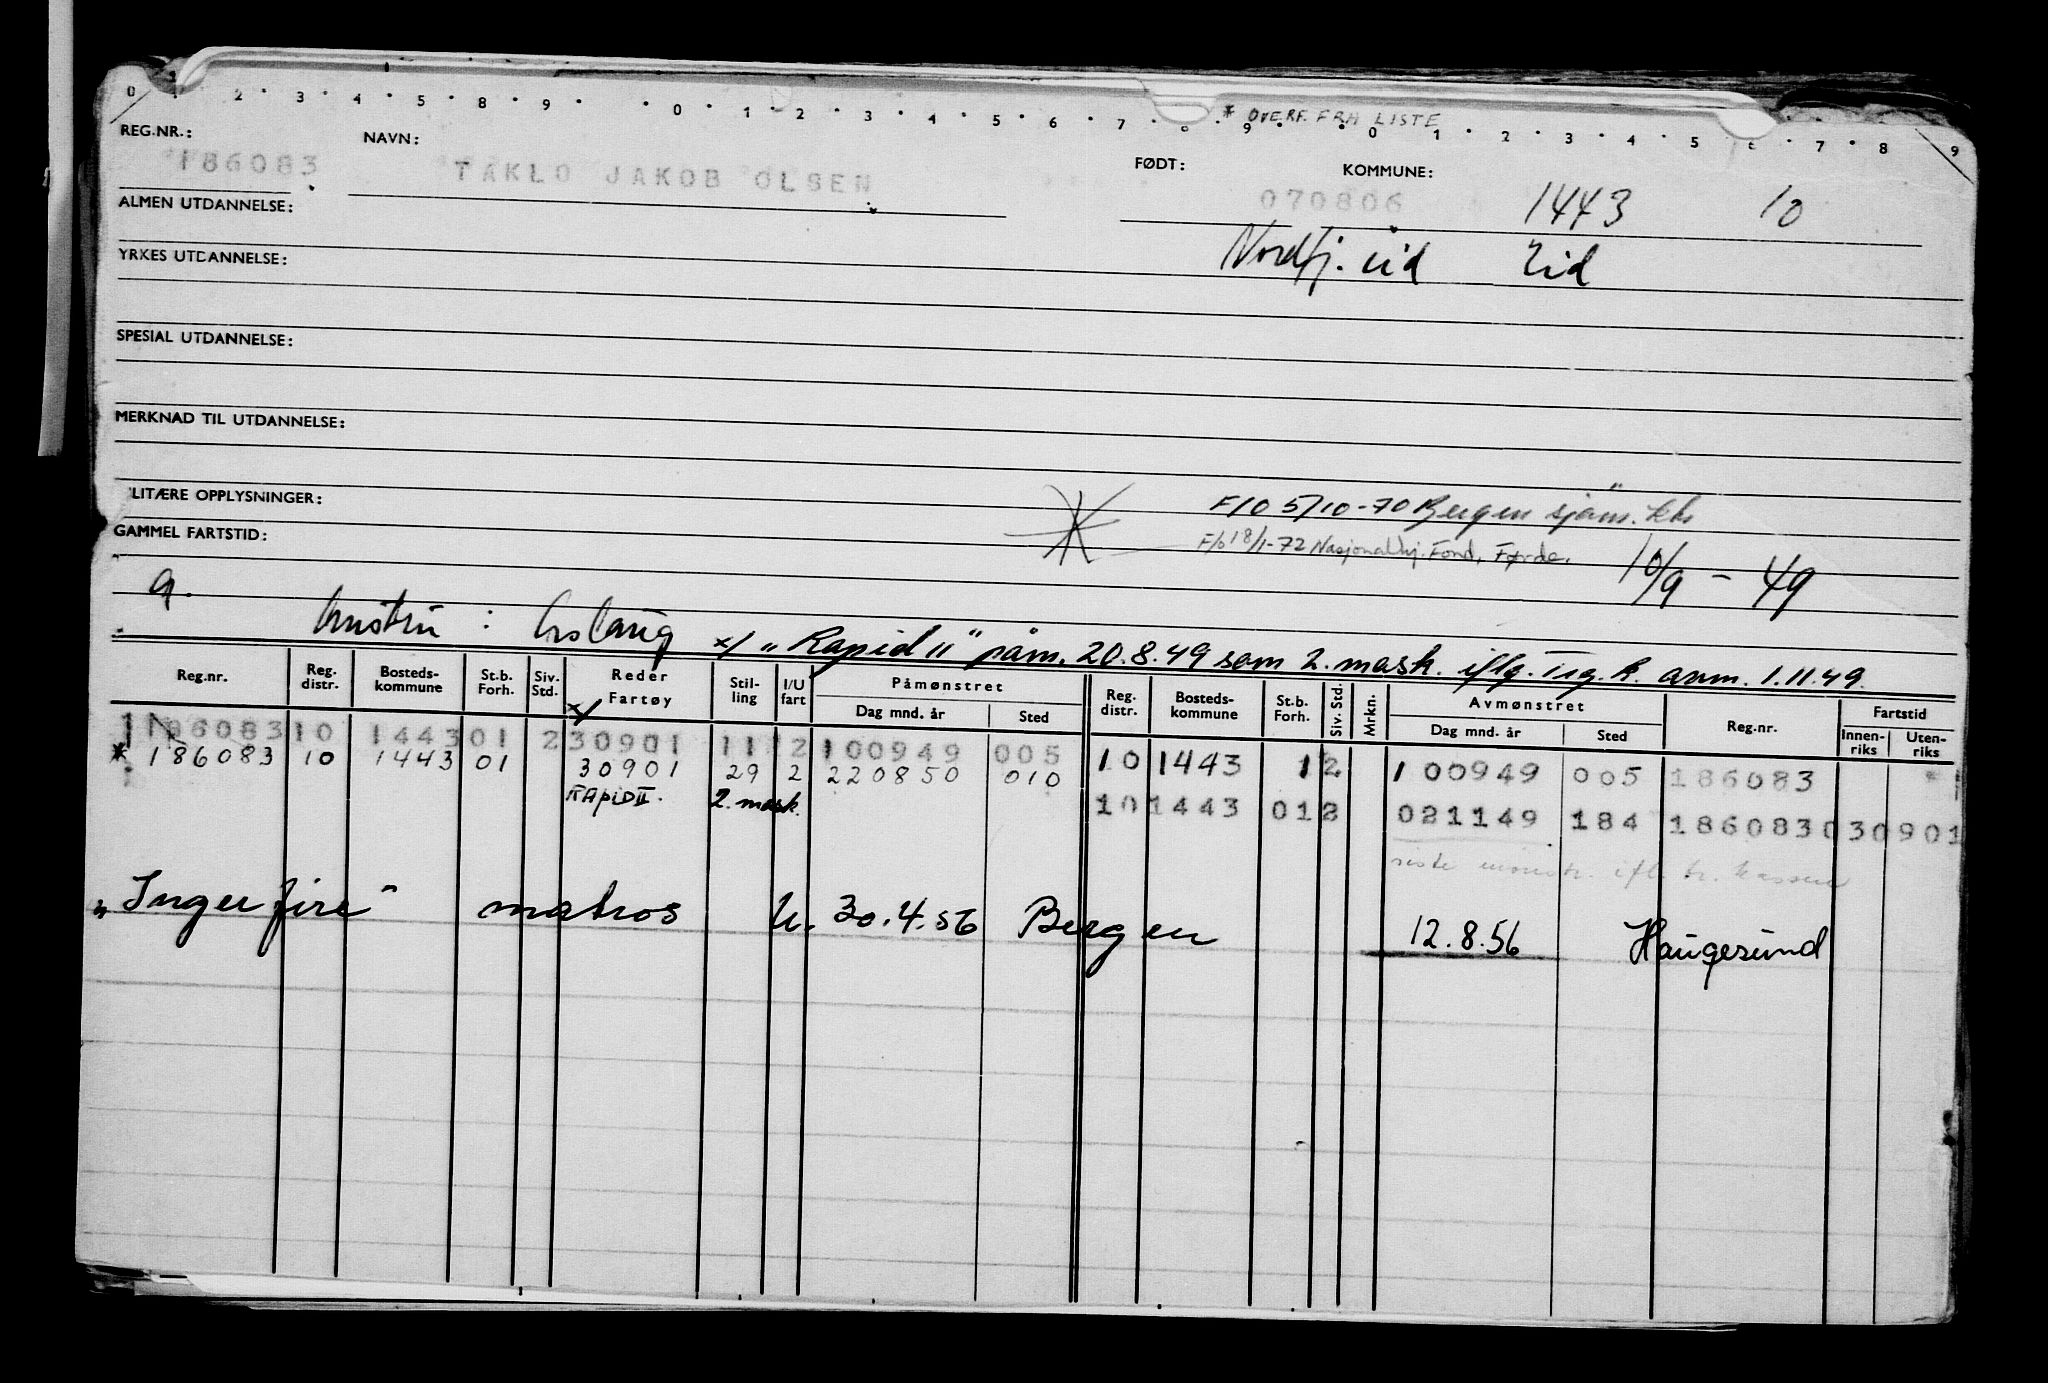 0 1 2 3 4 5 8 9 0 1 2 3 4 5 6 7 8 9 0 1 2 3 4 5 6 7 8 9
* OVERF. FRA LISTE
REG.NR.: NAVN: FØDT: KOMMUNE:
186083 TAKLO JAKOB OLSEN 070806 1443 10
ALMEN UTDANNELSE:
Nordfj. eid Eid
YRKES UTDANNELSE:
SPESIAL UTDANNELSE:
MERKNAD TIL UTDANNELSE:
LITÆRE OPPLYSNINGER:
F/O 5/10-70 Bergen sjøm. kh.
GAMMEL FARTSTID:
F/o 18/1-72 Nasjonalhj. Fond, Førde.
10/9 - 49
g. hustru : Aslaug
x/ „Rapid II" påm. 20.8.49 som 2. mask. iflg. Trg. k. avm. 1.11.49.
Reg.nr. Reg. distr. Bosteds-kommune St.b. Forh. Siv. Std. Reder Fartøy Stil-ling I/U fart Påmønstret Dag mnd. år Sted Reg. distr. Bosteds-kommune St.b. Forh. Siv. Std. Mrkn. Avmønstret Dag mnd. år Sted Reg.nr. Fartstid Innen-riks Uten-riks
x/
186083 10 1443 01 2 30901 11 2 100949 005 10 1443 1 2 100949 005 186083
* 186083 10 1443 01 30901 29 2 220850 010
RAPID II. 2. mask. 10 1443 01 2 021149 184 186083 030901
siste mønstr. ifl. tr. kassen
„Ingerfire" matros U. 30.4.56 Bergen 12.8.56 Haugesund